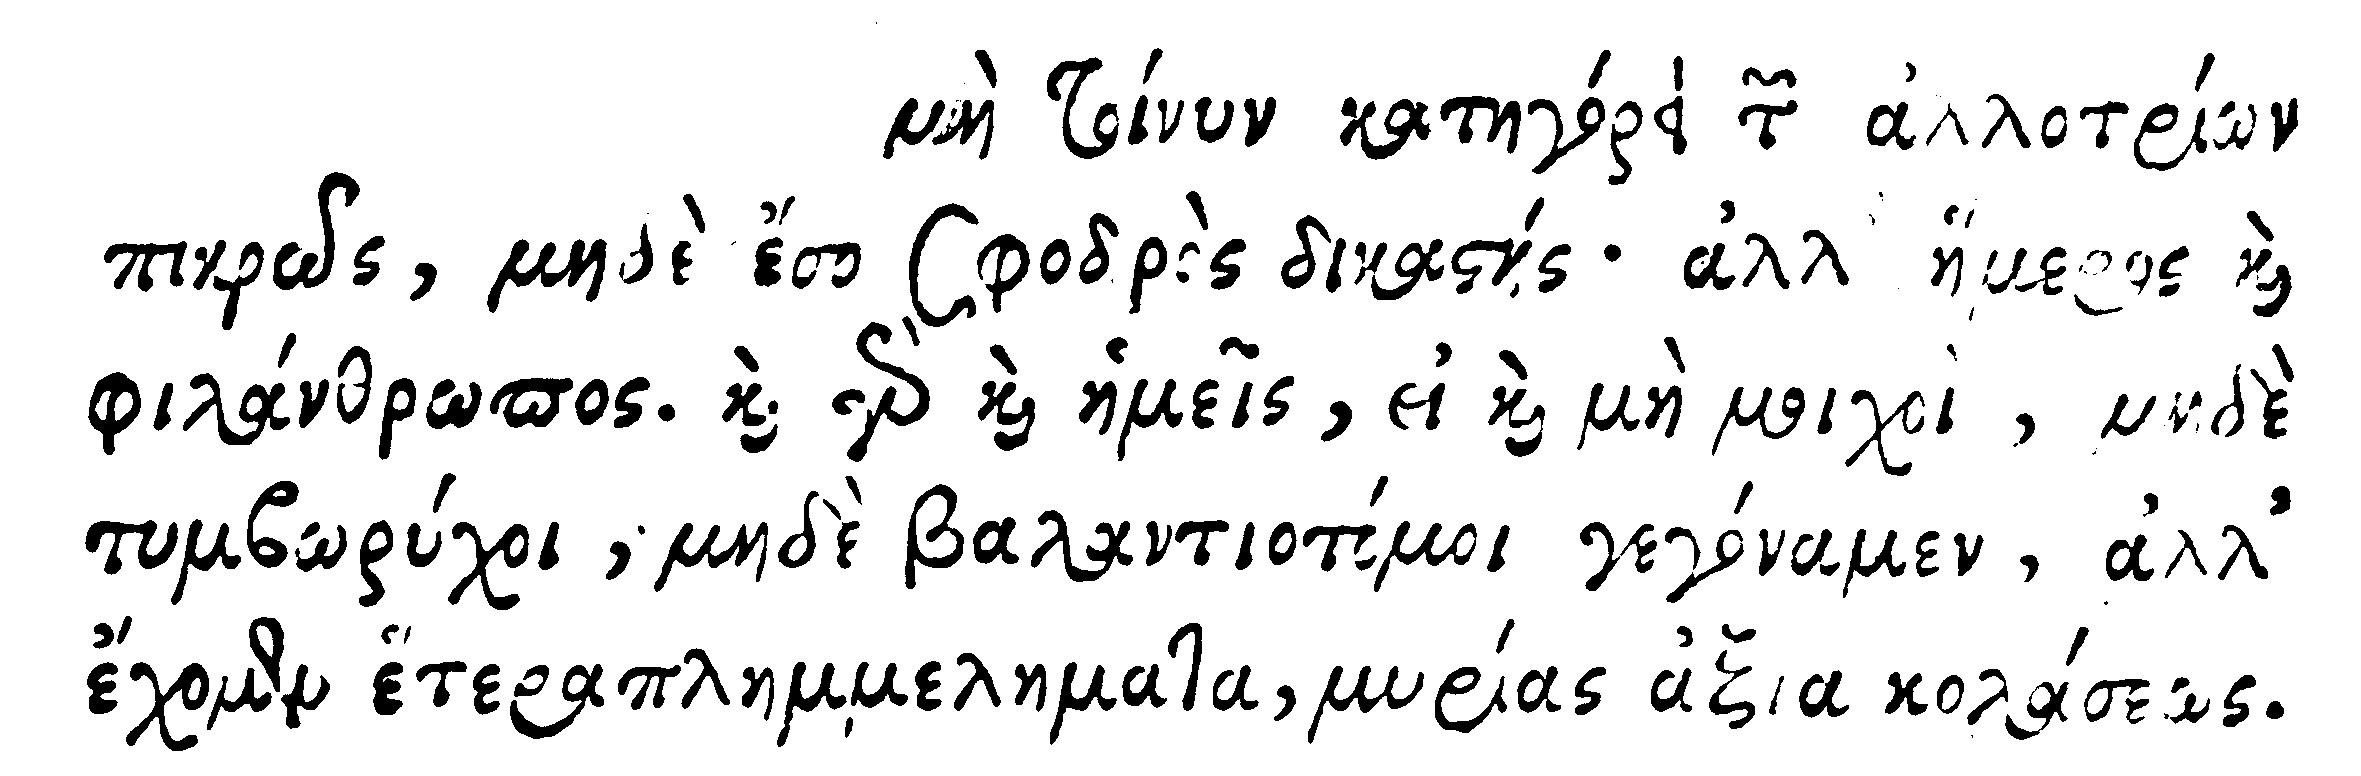 μὴ τοίνυν κατηγόρει τῶν ἀλλοτρίων
πικρῶς, μηδὲ ἔσο σφοδρὸς δικαστής· ἀλλ' ἥμερος καὶ
φιλάνθρωπος. καὶ γὰρ καὶ ἡμεῖς, εἰ καὶ μὴ μοιχοὶ, μηδὲ
τυμβωρύχοι, μηδὲ βαλαντιοτόμοι γεγόναμεν, ἀλλ'
ἔχομεν ἕτερα πλημμελήματα, μυρίας ἄξια κολάσεως.